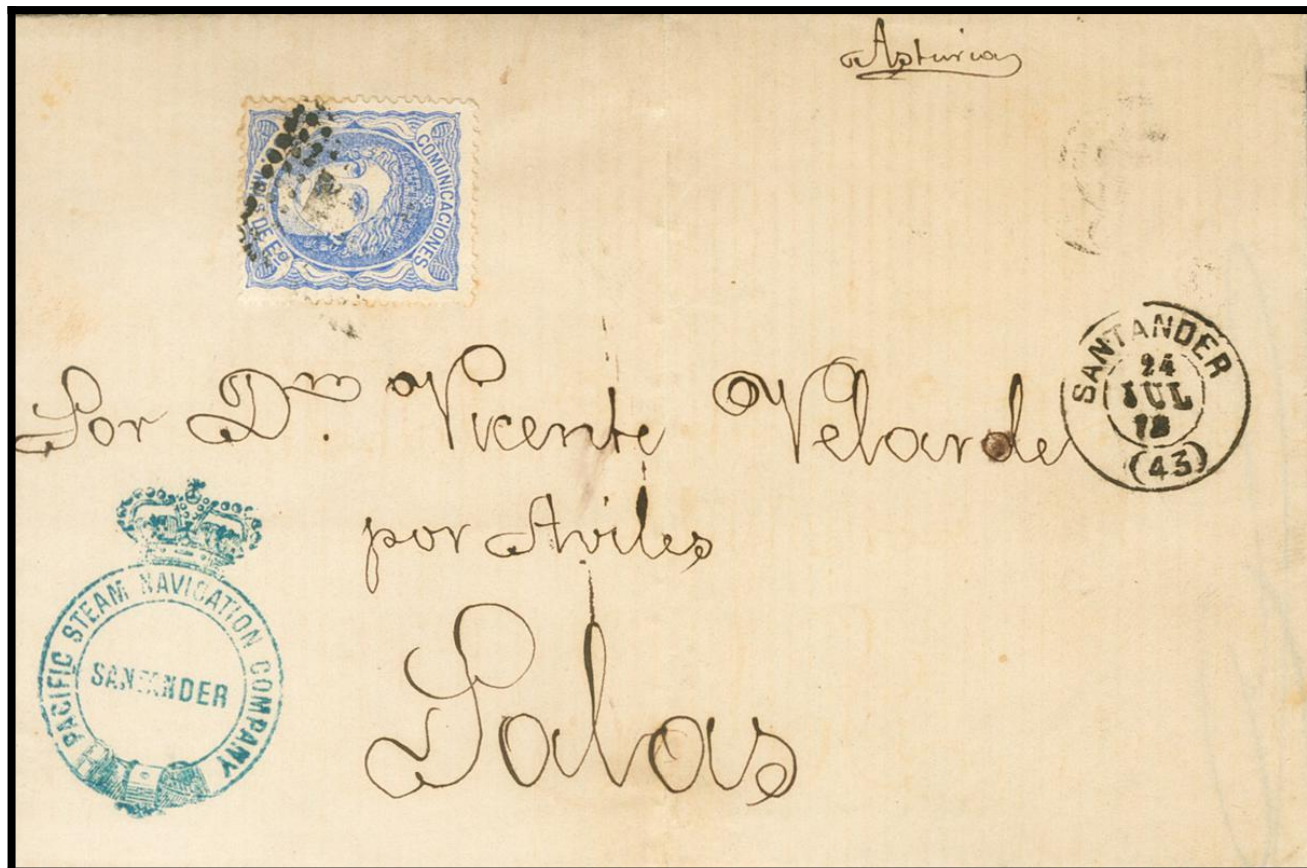 Asturias
COMUNICACIONES
DE Eº
SANTANDER
24
JUL
(43)
Sor Dn. Vicente Velarde
por Aviles
Salas
PACIFIC STEAM NAVIGATION COMPANY
SANTANDER